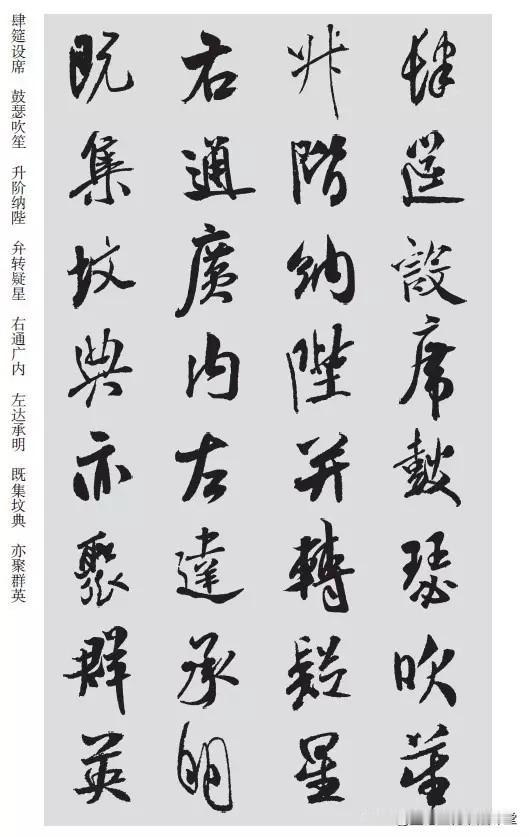 肆筵设席 鼓瑟吹笙 升阶纳陛 弁转疑星 右通广内 左达承明 既集坟典 亦聚群英
肆筵設席鼓瑟吹笙
升階納陛弁轉疑星
右通廣内左達承明
既集墳典亦聚群英